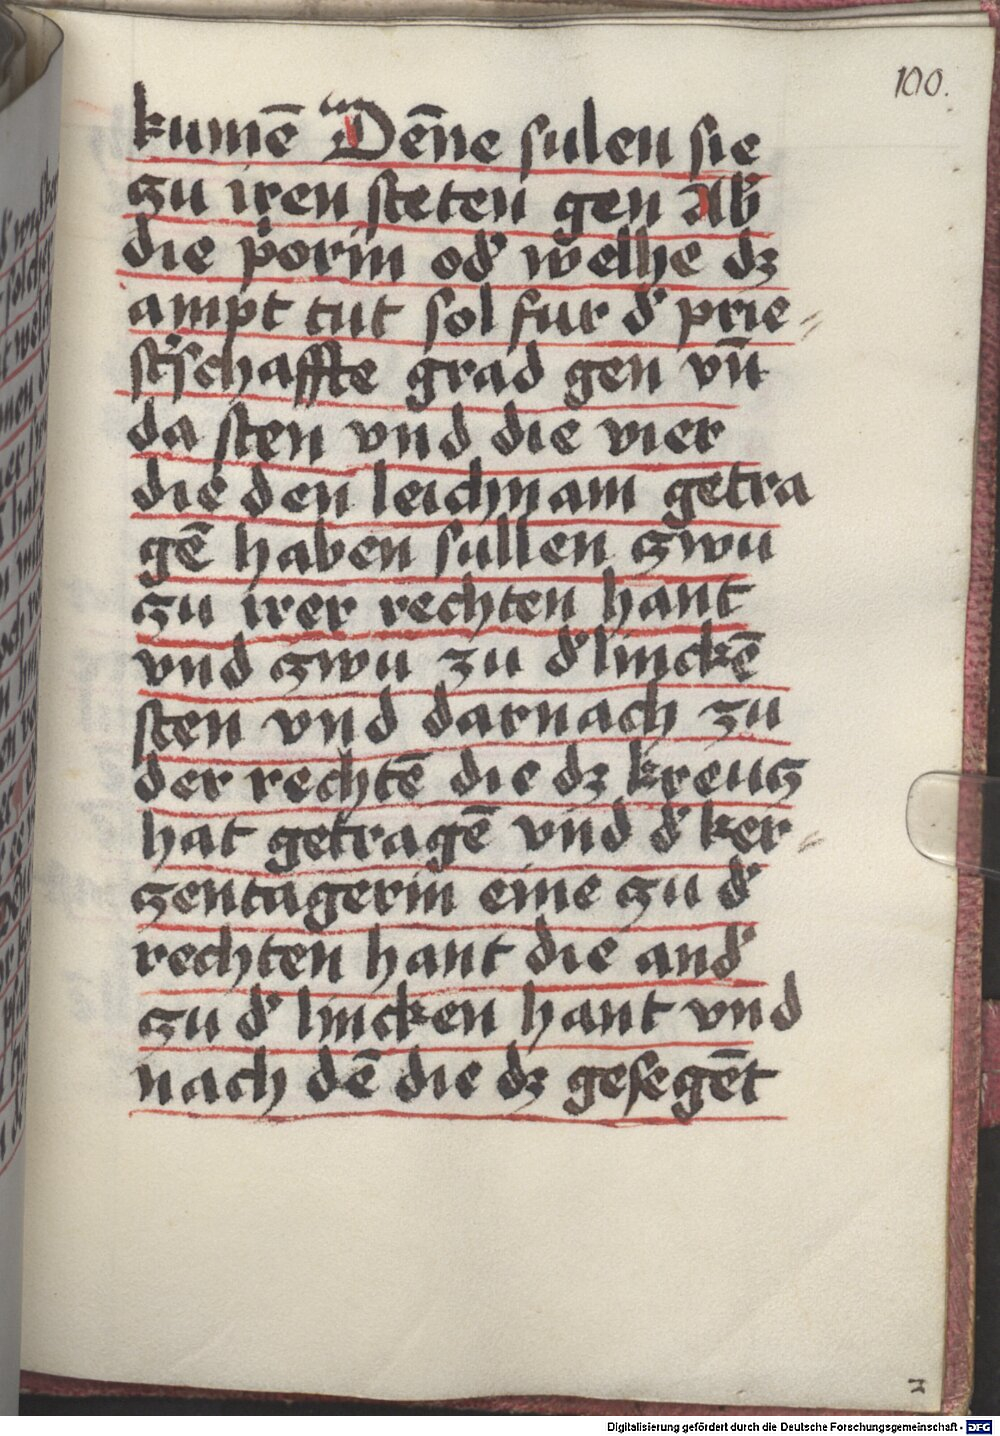 100.
kumē Dēne sulen sie
zu iren steten gen Ab̾
die p̾orin od̾ welhe dz
ampt tut sol fur d̾ prie⸗
st̾schaffte grad gen vn̄
da sten vnd die vier
die den leichnam getra
gē haben sullen zwu
zu irer rechten hant
vnd zwu zu d̾ linckē
sten vnd darnach zu
der rechtē die dz kreuz
hat getragē vnd d̾ ker⸗
zentagerin eine zu d̾
rechten hant die and̾
zu d̾ lincken hant vnd
nach dē die dz gesegēt
Digitalisierung gefördert durch die Deutsche Forschungsgemeinschaft - DFG